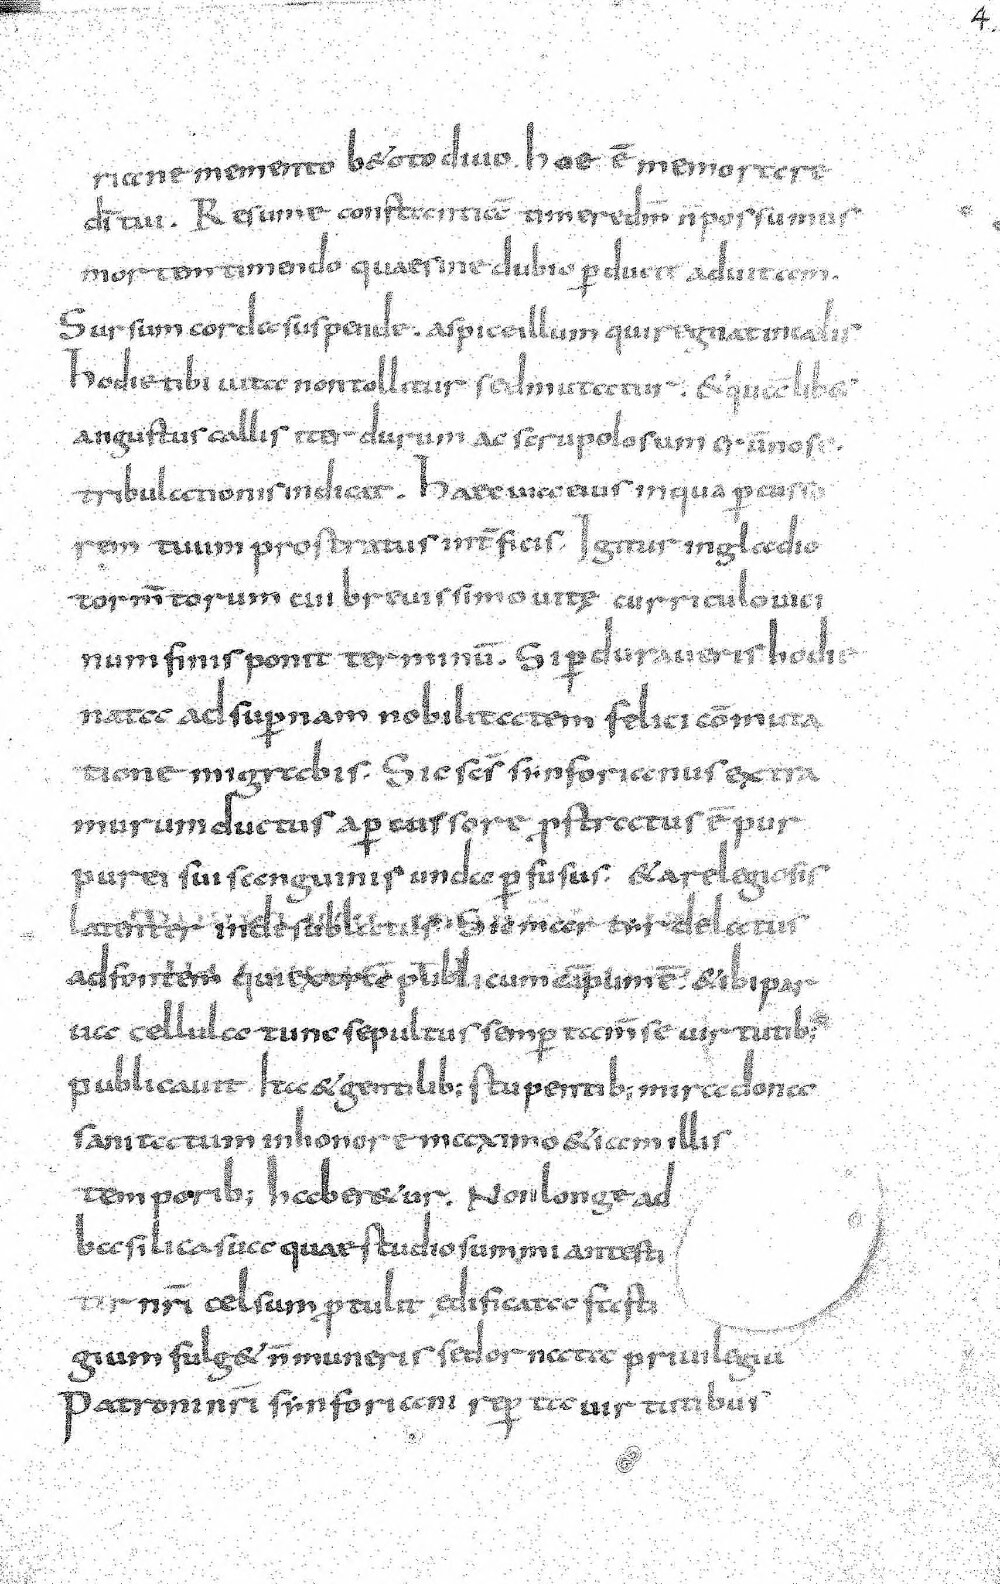 4.
riane memento b&oto diuo. hoc ē memor tere
dītui. Resume constantiā timeredm̄ n̄possumus
mortem timendo quaesine dubio ꝑducit aduitam.
Sursum corda suspende. aspice illum qui regnat in caelis
hodie tibi uita non tollitur sed mutatur. &
angustus callis iter durum ac scrupolosum
tribulationis indicat. Haec uia eius in qua ꝑcusso
rem tuum prostratus int̄ficis. Igitur in gladio
torm̄torum cui breuissimo uitę curriculo uici
num finis ponit terminū. Si ꝑduraueris hodie
nata ad suꝑnam nobilitatem felici cōmuta
tione migrabis. Sic scs̄ sinforianus extra
murum ductus a ꝑcussore ꝓstratus ē pur
purei sui sanguinis unda ꝑfusus. & a relegiosis
latenter inde sublatus. delatus
ad fontem qui extra publicum cāpum ē. & ibi par
ua cellula tunc sepultus semꝑ tam̄ se uirtutib;
publicauit Ita & gentilib; stupentib; mira dona
sanitatum in honore maximo & iam illis
temporib; haber&ur. Non longe ad
basilica sua quae studio summi antesti
tir nr̄i celsum ꝓtulit ędificata fasti
gium fulg& n̄ muneris sed ornata priuilegii
Patroni nr̄i sinforiani uirtutibus